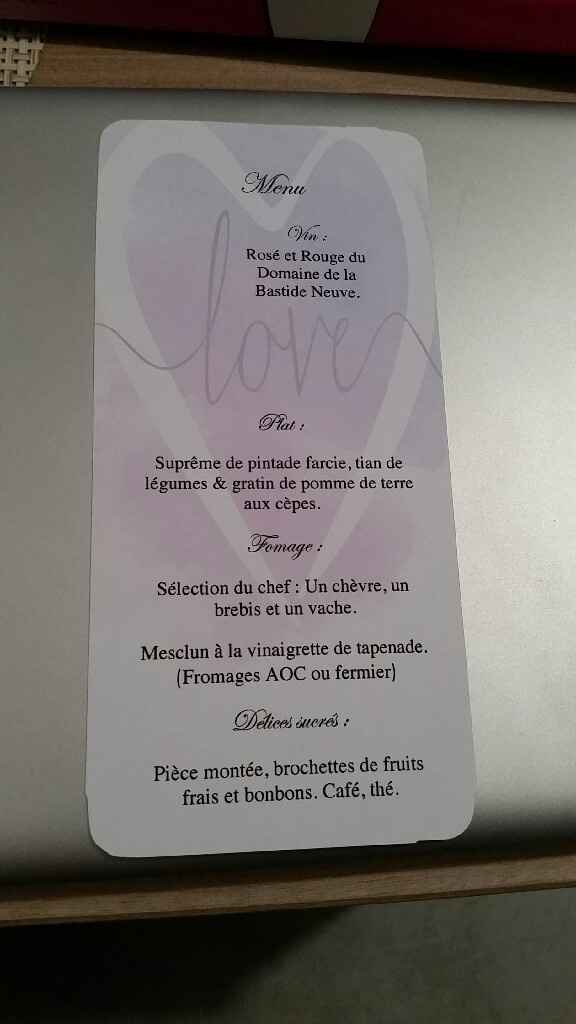 Menu
Vin :
Rosé et Rouge du
Domaine de la
Bastide Neuve.
love
Plat :
Suprême de pintade farcie, tian de
légumes & gratin de pomme de terre
aux cèpes.
Fomage :
Sélection du chef : Un chèvre, un
brebis et un vache.
Mesclun à la vinaigrette de tapenade.
(Fromages AOC ou fermier)
Délices sucrés :
Pièce montée, brochettes de fruits
frais et bonbons. Café, thé.